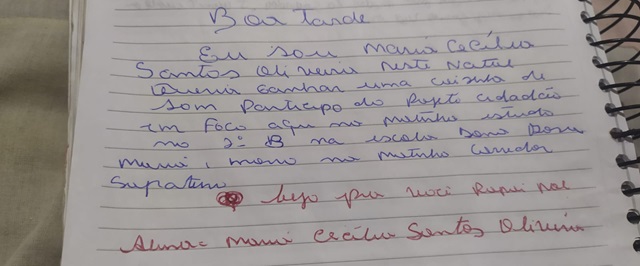 Boa Tarde
Eu sou Maria Cecília
Santos Oliveira neste Natal
Queria Ganhar uma caixinha de
som Participo do Projeto cidadão
em Foco aqui no Matinho estudo
no 2º B na escola Dona Rosa
, moro no Matinho
beijo pra você Papai Noel
Aluna = Maria Cecília Santos Oliveira